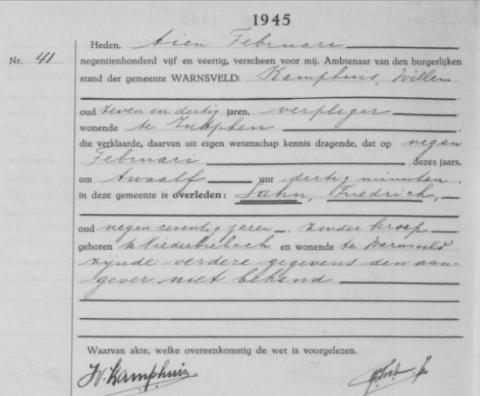 1945
Heden, tien Februari
Nr. 41. negentienhonderd vijf en veertig, verscheen voor mij, Ambtenaar van den burgerlijken
stand der gemeente WARNSVELD: Kamphuis, Willem
oud zeven en dertig jaren, verpleger
wonende te Zutphen
die verklaarde, daarvan uit eigen wetenschap kennis dragende, dat op negen
Februari dezes jaars,
om twaalf uur dertig minuten
in deze gemeente is overleden: Jahn, Friedrich,
oud negen zeventig jaren, zonder beroep
geboren te Niederbiebach en wonende te Warnsveld
zijnde verdere gegevens den aan-
gever niet bekend
Waarvan akte, welke overeenkomstig de wet is voorgelezen.
W. Kamphuis